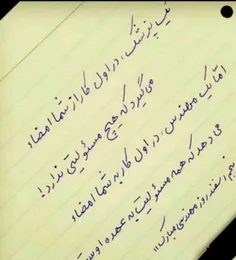 یک پزشک، در اول کار از شما امضاء
می گیرد که هیچ مسئولیتی ندارد!
امّا یک مهندس، در اول کار به شما امضاء
می دهد که همه مسئولیت به عهده اوست
پنجم اسفند روز مهندسی مبارک!!